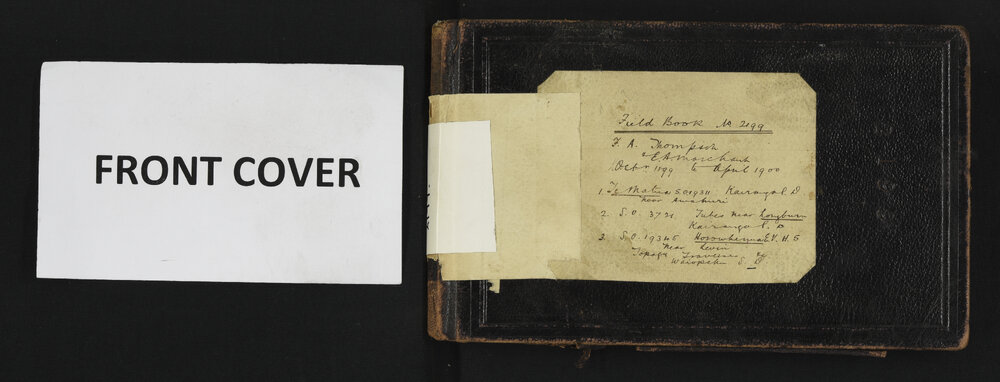 FRONT COVER
Field Book No 2199
F. A. Thompson
& E. A. Marchant
Octr 1899 to April 1900
1. Te Matua S.O 1931 Kairanga S. D
near Awahuri
2. S. O. 3721. Tubes near Longburn
Kairanga S. D
3. S. O. 19345 Horowhenua
near Levin
Topog Traverses
Waiopehu S. D